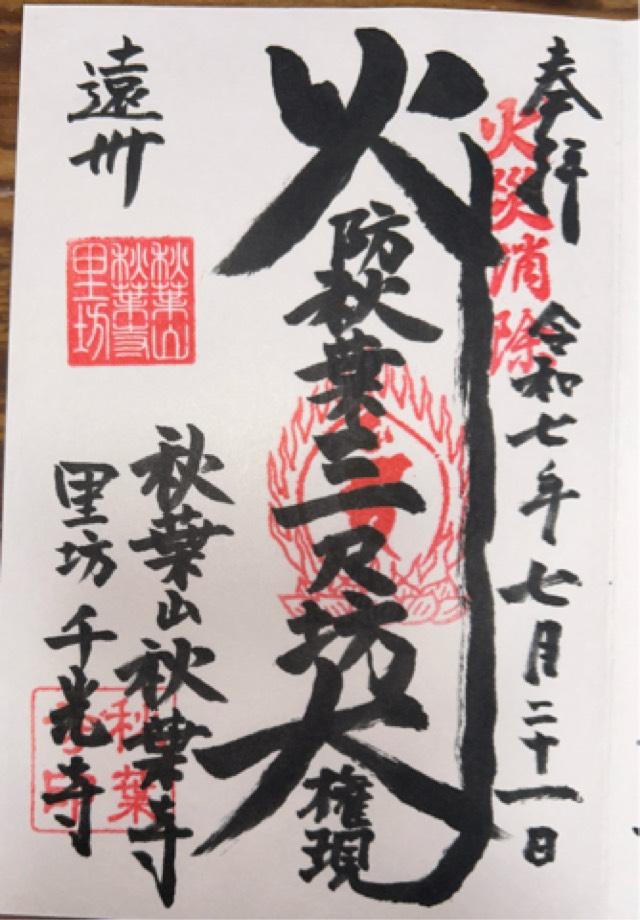 奉拝
火災消除
令和七年七月二十一日
火防秋葉三尺坊大権現
遠州
秋葉山
秋葉寺
里坊
秋葉山秋葉寺
里坊千光寺
秋葉